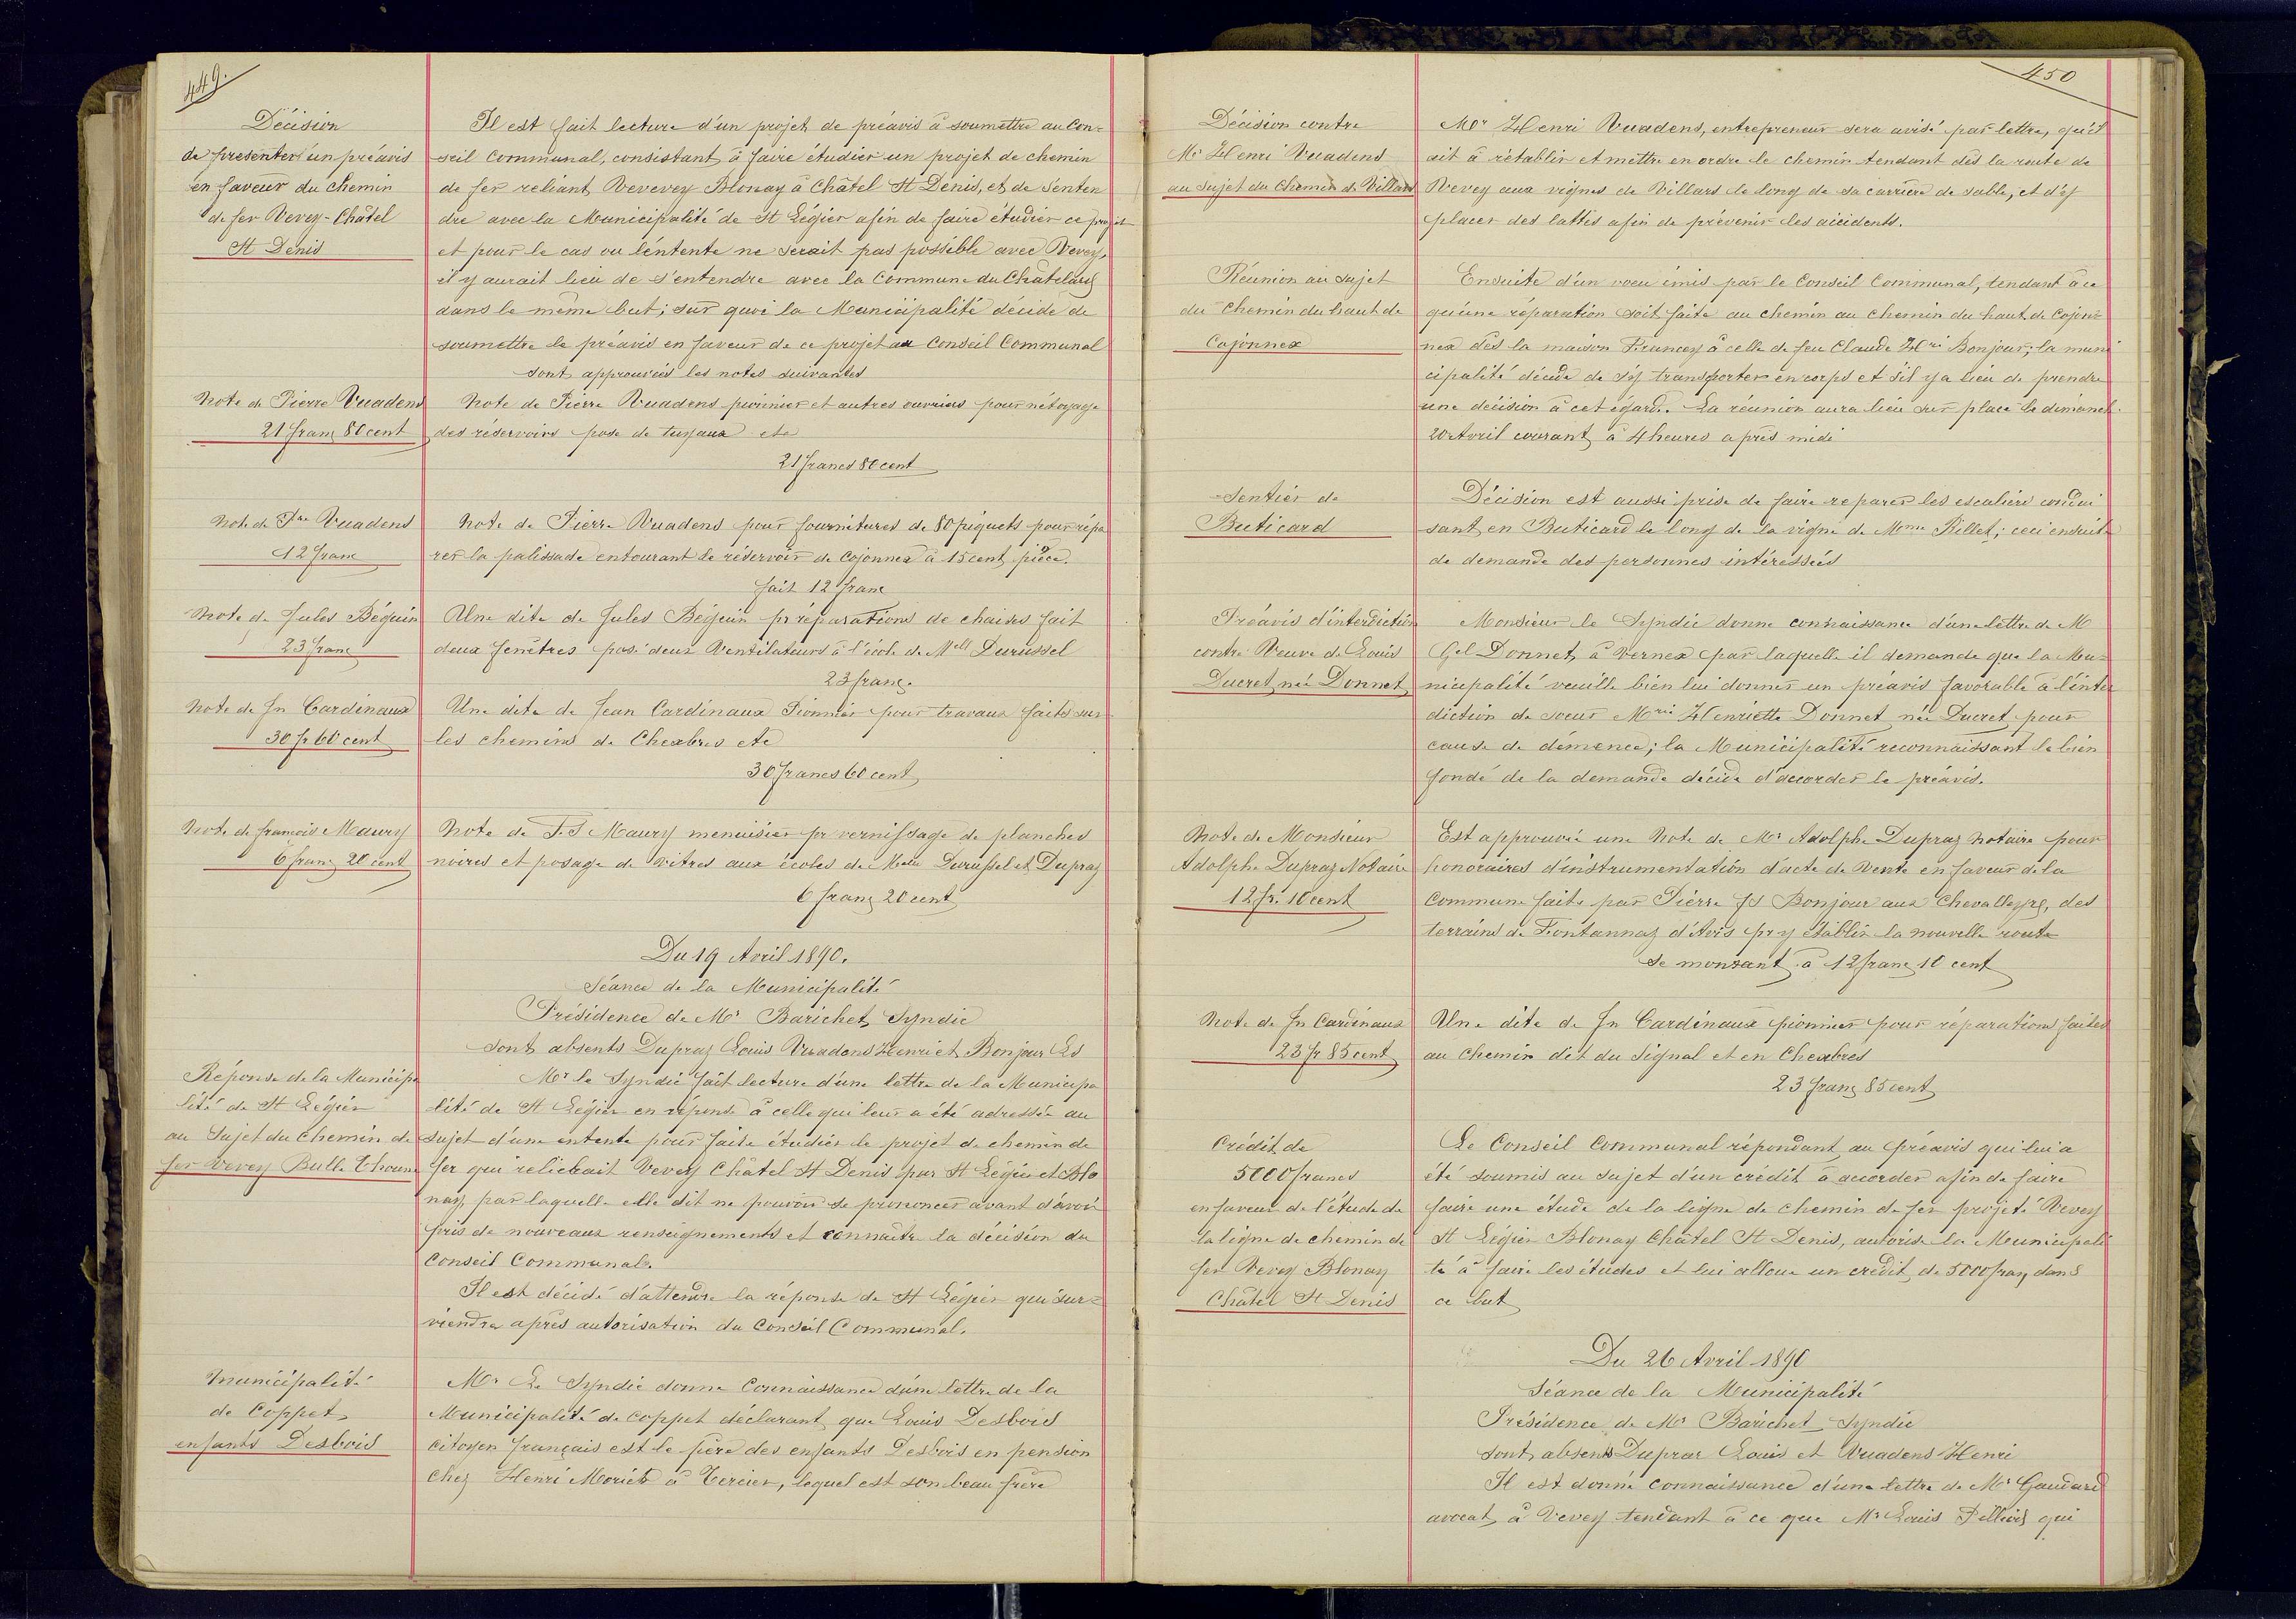 449.
Décision
de presenter un préavis
en faveur du chemin
de fer Vevey-Châtel
St Denis
Il est fait lecture d'un projet de préavis à soumettre au Con-
seil Communal, consistant à faire étudier un projet de chemin
de fer reliant Vevevey Blonay à Châtel St Denis, et de s'enten
dre avec la Municipalité de St Légier afin de faire étudier ce projet
et pour le cas ou l'entente ne serait pas possible avec Vevey,
il y aurait lieu de s'entendre avec la Commune du Châtelard
dans le même but; sur quoi la Municipalité décide de
soumettre le préavis en faveur de ce projet au Conseil Communal
sont approuvées les notes suivantes
Note de Pierre Vuadens
21 franc 80 cent
Note de Pierre Vuadens pionnier et autres ouvriers pour nétoyage
des réservoirs pose de tuyaux etc
21 francs 80 cent
Note de Pre Vuadens
12 franc
Note de Pierre Vuadens pour fournitures de 80 piquets pour répa
rer la palissade entourant le réservoir de Cojonnex à 15 cent pièce.
fait 12 franc
Note de Jules Béguin
23 franc
Une dite de Jules Béguin pr réparations de chaises fait
deux fenêtres posé deux Ventilateurs à l'école de Mell Durussel
23 franc.
Note de Jn Cardinaux
30 fr 60 cent
Une dite de Jean Cardinaux Pionnier pour travaux faits sur
les chemins de Chexbres etc
30 francs 60 cent
Note de francois Maury
6 franc 20 cent
Note de F.s Maury menuisier pr vernissage de planches
noires et posage de vitres aux écoles de Melle Durussel et Dupraz
6 franc 20 cent
Du 19 Avril 1890.
Séance de la Municipalité
Présidence de Mr Barichet Syndic
sont absents Dupraz Louis Vuadens Henri et Bonjour Ls
Réponse de la Municipa
lité de St Légier
au Sujet du Chemin de
fer Vevey Bulle Thoune
Mr le Syndic fait lecture d'une lettre de la Municipa
lité de St Légier en réponse à celle qui leur a été adressée au
sujet d'une entente pour faire étudier le projet de chemin de
fer qui relierait Vevey Châtel St Denis par St Légier et Blo
nay, par laquelle elle dit ne pouvoir se prononcer avant d'avoir
pris de nouveaux renseignements et connaitre la décision du
Conseil Communal.
Il est décidé d'attendre la réponse de St Légier qui sur-
viendra après autorisation du Conseil Communal.
Municipalité
de Coppet
enfants Desbois
Mr Le Syndic donne Connaissance d'une lettre de la
Municipalité de Coppet déclarant que Louis Desbois
Citoyen français est le père des enfants Desbois en pension
chez Henri Moriet à Tercier, lequel est son beau frère
450
Décision contre
Mr Henri Vuadens
au Sujet du Chemin de Villars
Mor Henri Vuadens, entrepreneur sera avisé par lettre, qu'il
ait à rétablir et mettre en ordre le chemin tendant dès la route de
Vevey aux vignes de Villars le long de sa carrière de sable, et d'y
placer des lattis afin de prévenir les accidents.
Réunion au sujet
du Chemin du haut de
Cojonnex
Ensuite d'un voeu émis par le Conseil Communal, tendant à ce
qu'une réparation soit faite au chemin au chemin du haut de Cojon-
nex dès la maison Francey à celle de feu Claude Hri Bonjour; la muni
cipalité décide de s'y transporter en corps et s'il y a lieu de prendre
une décision à cet égard. La réunion aura lieu sur place le dimanch.
20 Avril courant à 4 heures après midi
Sentier de
Buticard
Décision est aussi prise de faire reparer les escaliers condui
sant en Buticard le long de la vigne de Mme Pillet; ceci ensuite
de demande des personnes intéressées
Préavis d'interdiction
contre Veuve de Louis
Ducret née Donnet
Monsieur le Syndic donne connaissance d'une lettre de M
Gel Donnet à Vernex par laquelle il demande que la Mu-
nicipalité veuille bien lui donner un préavis favorable à l'inter
diction de soeur Mrie Henriette Donnet née Ducret pour
cause de démence; la Municipalité reconnaissant le bien
fondé de la demande décide d'accorder le préavis.
Note de Monsieur
Adolphe Dupraz Notaire
12 fr. 10 cent
Est approuvée une Note de Mr Adolphe Dupraz Notaire pour
honoraires d'instrumentation d'acte de Vente en faveur de la
Commune faite par Pierre Fs Bonjour aux Chevalleyre, des
terrains de Fontannaz d'Avis pr y établir la nouvelle route
se montant à 12 franc 10 cent
Note de Jn Cardinaux
23 fr 85 cent
Une dite de Jn Cardinaux pionnier pour réparations faites
au Chemin dit du Signal et en Chexbres
23 franc 85 cent
Crédit de
5000 francs
en faveur de l'étude de
la ligne de chemin de
fer Vevey Blonay
Châtel St Denis
Le Conseil Communal répondant au préavis qui lui a
été soumis au sujet d'un crédit à accorder afin de faire
faire une étude de la ligne de chemin de fer projeté Vevey
St Légier Blonay Châtel St Denis, autorise la Municipali
té à faire les études et lui alloue un crédit de 5000 franc dans
ce but
Du 26 Avril 1890
Séance de la Municipalité
Présidence de Mr Barichet Syndic
sont absents Dupraz Louis et Vuadens Henri
Il est donné connaissance d'une lettre de Mr Gaudard
avocat à Vevey tendant à ce que Mr Louis Pellis qui